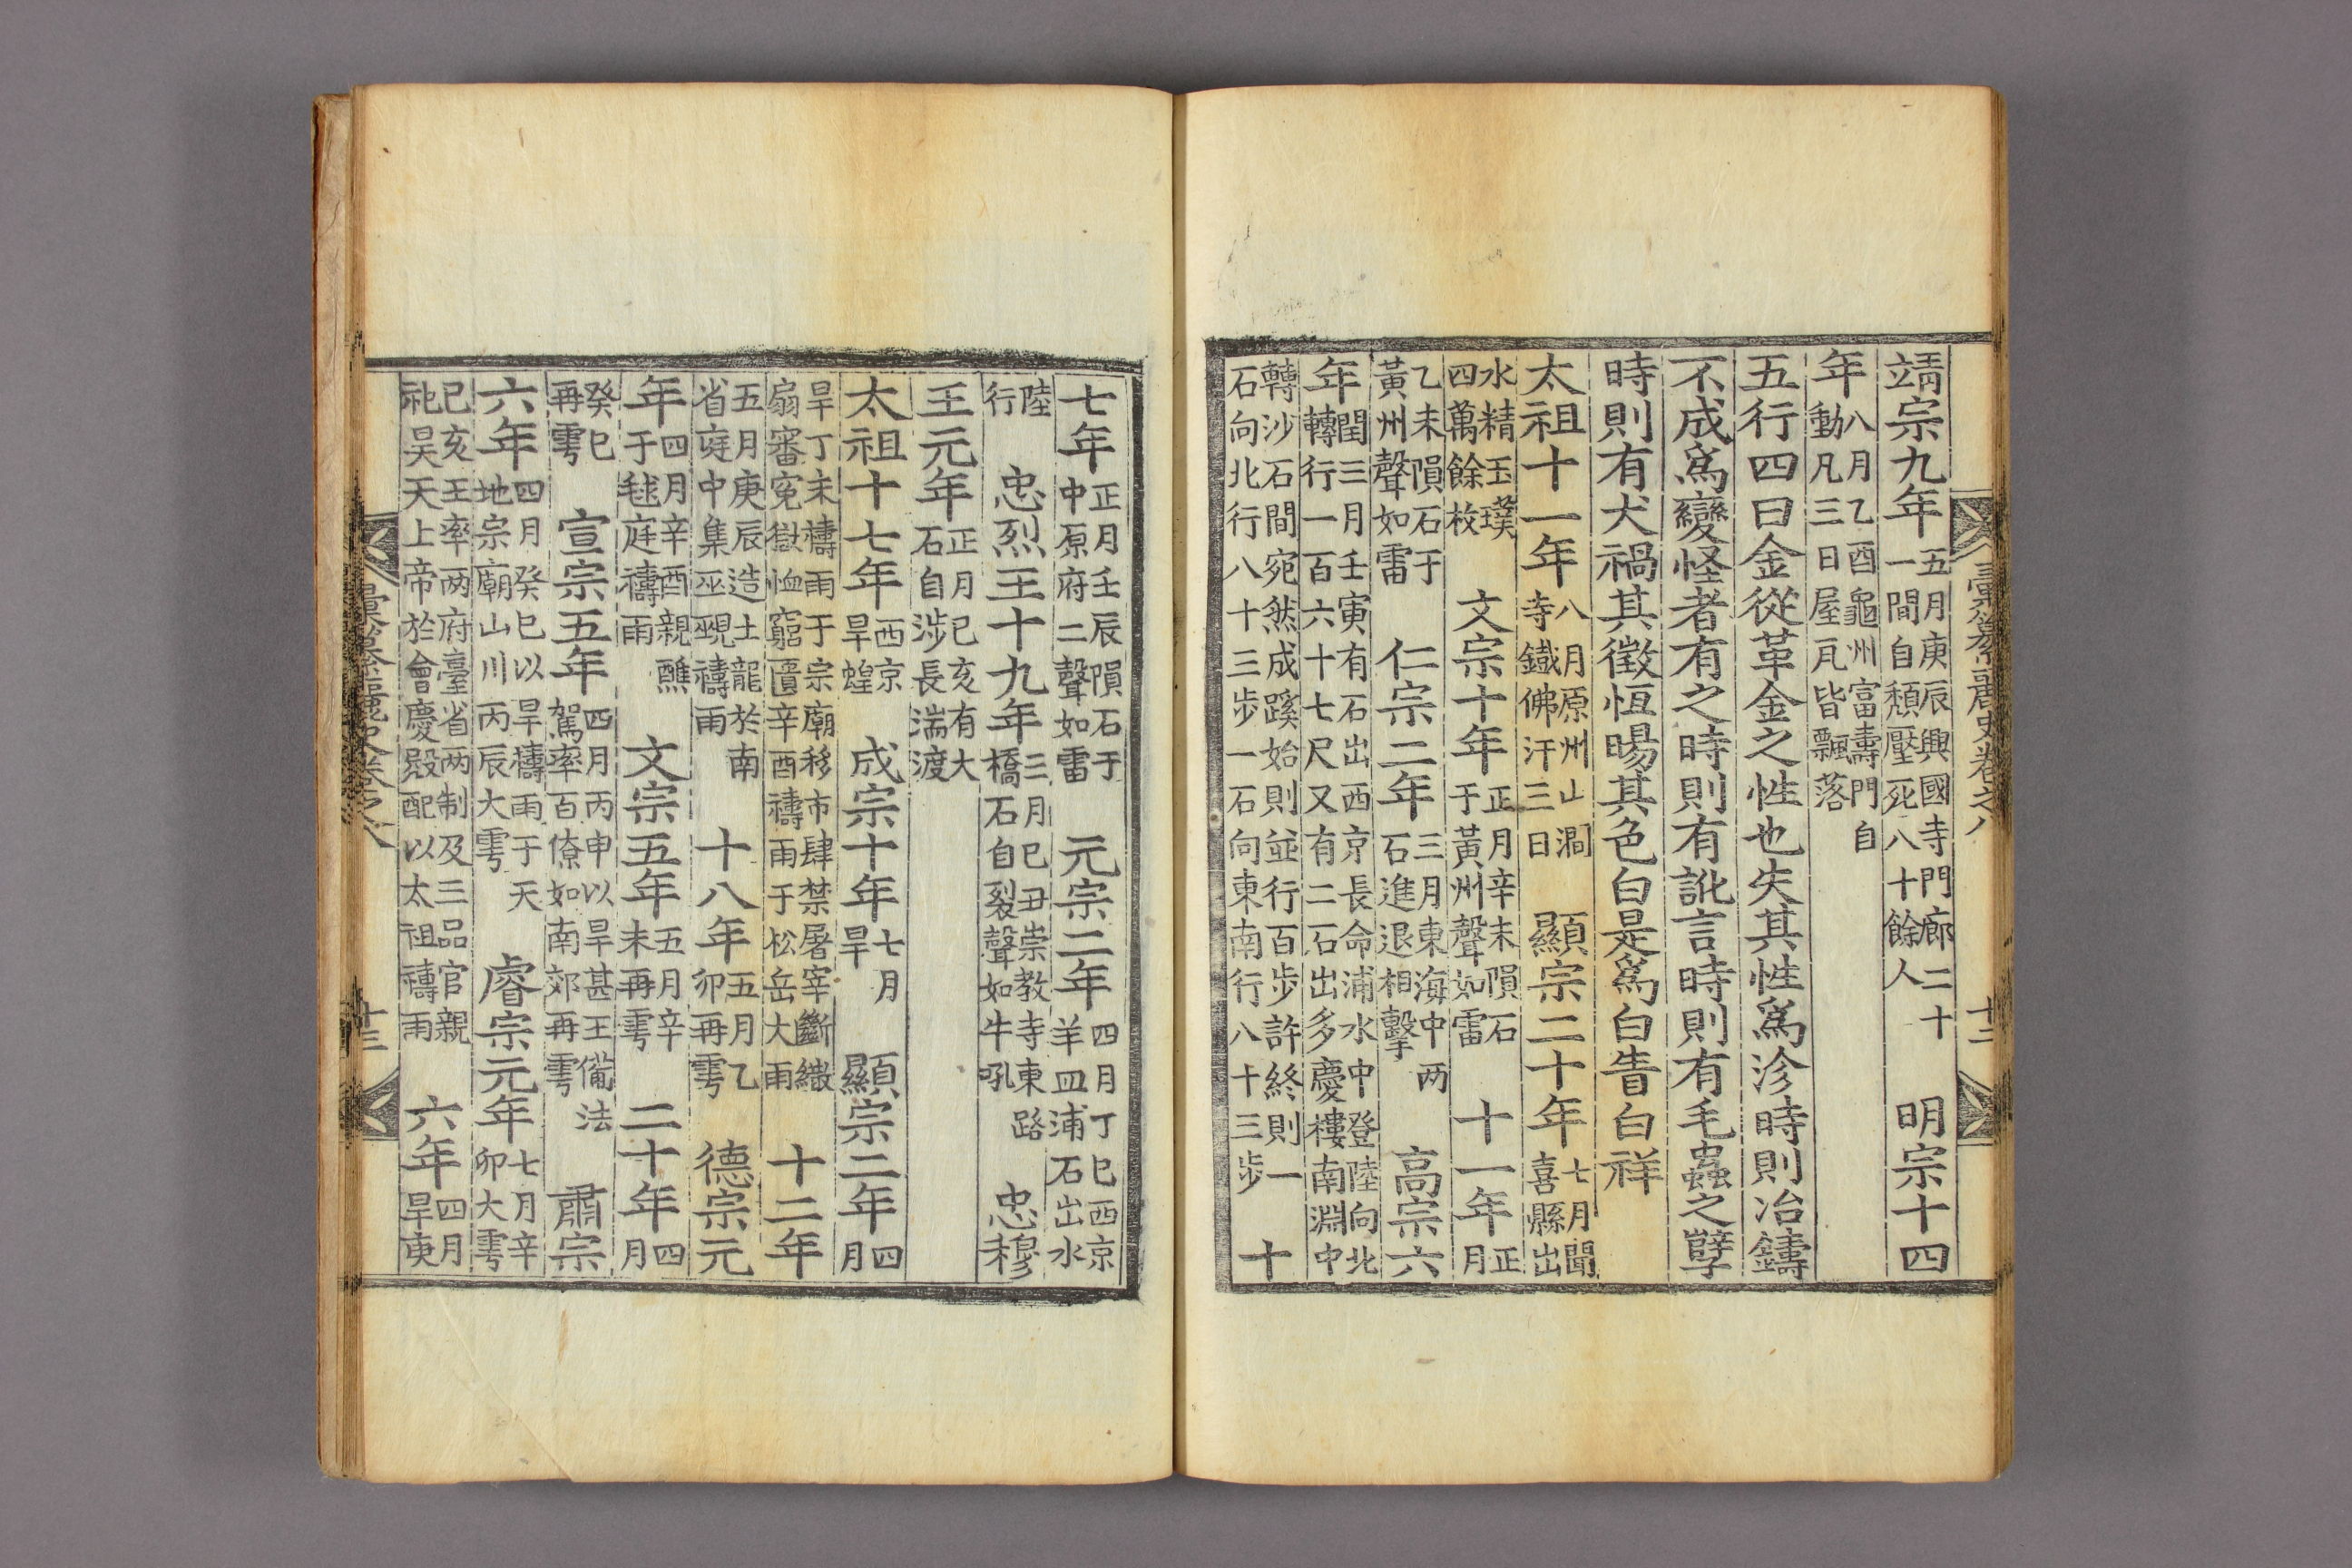 靖宗九年五月庚辰興國寺門廊二十一間自頹壓死八十餘人 明宗十四
年八月乙酉龜州富壽門自動凡三日屋瓦皆飄落
五行四曰金從革金之性也失其性爲沴時則冶鑄
不成爲變怪者有之時則有訛言時則有毛蟲之孽
時則有犬禍其徵恒暘其色白是爲白眚白祥
太祖十一年八月原州山澗寺鐵佛汗三日 顯宗二十年七月聞喜縣出
水精玉璞四萬餘枚 文宗十年正月辛未隕石于黃州聲如雷 十一年正月
乙未隕石于黃州聲如雷 仁宗二年三月東海中两石進退相擊 高宗六
年閏三月壬寅有石出西京長命浦水中登陸向北轉行一百六十七尺又有二石出多慶樓南淵中
轉沙石間宛然成蹊始則並行百步許終則一石向北行八十三步一石向東南行八十三步 十
彙纂麗史卷之八 十二
七年正月壬辰隕石于中原府二聲如雷 元宗二年四月丁巳西京羊皿浦石出水
陸行 忠烈王十九年三月巳丑崇教寺東路橋石自裂聲如牛吼 忠穆
王元年正月巳亥有大石自涉長湍渡
太祖十七年西京旱蝗 成宗十年七月旱 顯宗二年四月
旱丁未禱雨于宗廟移市肆禁屠宰斷繖扇審寃獄恤窮匱辛酉禱雨于松岳大雨 十二年
五月庚辰造土龍於南省庭中集巫覡禱雨 十八年五月乙卯再雩 德宗元
年四月辛酉親醮于毬庭禱雨 文宗五年五月辛未再雩 二十年四月
癸巳再雩 宣宗五年四月丙申以旱甚王備法駕率百僚如南郊再雩 肅宗
六年四月癸巳以旱禱雨于天地宗廟山川丙辰大雩 睿宗元年七月辛卯大雩
巳亥王率两府臺省两制及三品官親祀昊天上帝於會慶殿配以太祖禱雨 六年四月旱庚
彙纂麗史卷之八 十三